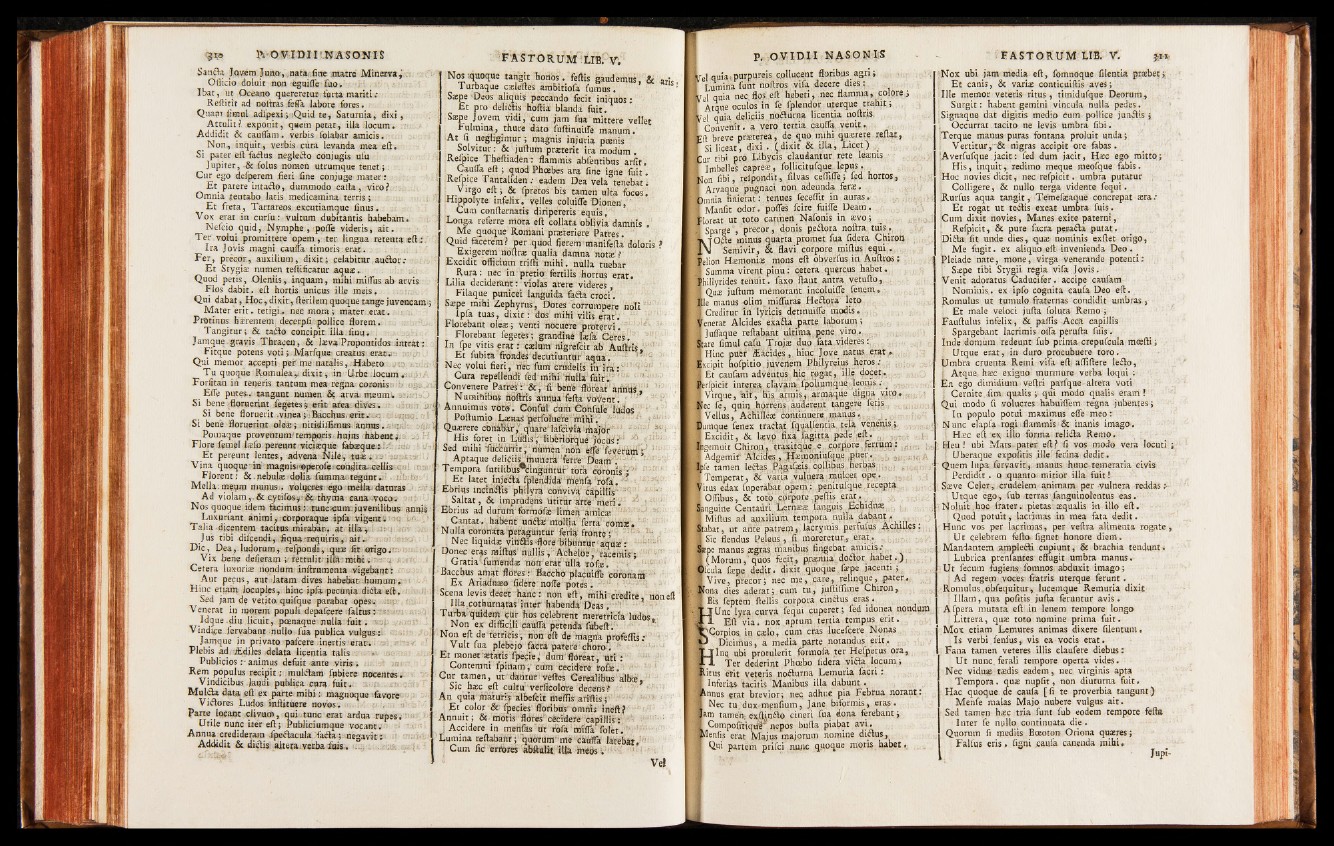 310 P. OVIDII NASONIS
Sancta Jovem Juno, nata sine matre Minerva,
Officio doluit non eguisse suo.
Ibat, ut Oceano quereretur furta mariti:
Restitit ad nostras fessa labore fores.
Quam simul adspexi; Quid te, Saturnia, dixi,
Attulit? exponit, quem petat, illa locum.
Addidit & caussam. verbis solabar amicis.
Non, inquit, verbis cura levanda mea est.
Si pater est factus neglecto conjugis usu
Jupiter, & solus nomen utrumque tenet;
Cur ego desperem fieri sine conjuge mater:
Et parere intacto, dummodo casta, viro?
Omnia tentabo latis medicamina terris;
Et freta, Tartareos excutiamque sinus.
Vox erat in cursu: vultum dubitantis habebam.
Nescio quid, Nymphe, posse videris, ait.
Ter volui promittere opem, ter lingua retenta est:
Ira Jovis magni caussa timoris erat.
Fer, precor, auxilium, dixit; celabitur auctor:
Et Stygiæ numen testificatur aquæ.
Quod petis, Oleniis, inquam, mihi missus ab arvis
Flos dabit. est hortis unicus ille meis.
Qui dabat, Hoc, dixit, sterilem quoque tange juvencam;
Mater erit. tetigi. nec mora; mater erat.
Protinus hærentem decerpsi pollice florem.
Tangitur; & tacto concipit illa sinu.
Jamque gravis Thracen, & læva Propontidos intrat:
Fitque potens voti; Marsque creatus erat.
Qui memor accepti per me natalis, Habeto
Tu quoque Romulea, dixit, in Urbe locum.
Forsitan in teneris tantum mea regna coronis
Esse putes. tangunt numen & arva meum.
Si bene floruerint segetes; erit area dives.
Si bene floruerit vinea; Bacchus erit.
Si bene floruerint oleæ; nitidissimus annus.
Pomaque proventum temporis hujus habent.
Flore semel læso pereunt viciæque fabæque:
Et pereunt lentes, advena Nile, tuæ.
Vina quoque in magnis operose condita cellis
Florent: & nebulæ dolia summa tegunt.
Mella meum munus. volucres ego mella daturas
Ad violam, & cytisos, & thyma cana voco.
Nos quoque idem facimus: tunc cum juvenilibus annis
Luxuriant animi, corporaque ipsa vigent.
Talia dicentem tacitus mirabar. at illa;
Jus tibi discendi, siqua requiris, ait.
Dic, Dea, ludorum, respondi, quæ sit origo.
Vix bene desieram; retrulit illa mihi.
Cetera luxuriæ nondum instrumenta vigebant:
Aut pecus, aut latam dives habebat humum.
Hinc etiam locuples, hinc ipsa pecunia dicta est.
Sed jam de vetito quisque parabat opes.
Venerat in morem populi depascere saltus:
Idque diu licuit, pœnaque nulla fuit.
Vindice servabant nullo sua publica vulgus:
Jamque in privato pascere inertis erat.
Plebis ad Ædiles delata licentia talis
Publicios: animus defuit ante viris.
Rem populus recipit: mulctam subiere nocentes.
Vindicibus laudi publica cura fuit.
Mulcta data est ex parte mihi: magnoque favore
Victores Ludos instituere novos.
Parte locant clivum, qui tunc erat ardua rupes.
Utile nunc iter est; Publiciumque vocant.
Annua credideram spectacula facta; negavit:
Addidit & dictis altera verba suis.
FASTORUM LIB. V.
Nos quoque tangit honos. festis gaudemus, & aris.
Turbaque cælestes ambitiosa sumus.
Sæpe Deos aliquis peccando fecit iniquos:
Et pro delictis hostia blanda fuit.
Sæpe Jovem vidi, cum jam sua mittere vellet
Fulmina, thure dato sustinuisse manum.
At si negligimur; magnis injuria pœnis
Solvitur: & justum præterit ira modum.
Respice Thestiaden: flammis absentibus arsit.
Caussa est; quod Phœbes ara sine igne fuit.
Respice Tantaliden: eadem Dea vela tenebat.
Virgo est; & spretos bis tamen ulta focos.
Hippolyte infelix, velles coluisse Dionen,
Cum consternatis diripereris equis.
Longa referre mora est collata oblivia damnis.
Me quoque Romani præteriere Patres.
Quid facerem? per quod fierem manifesta doloris?
Exigerem nostræ qualia damna notæ?
Excidit officium tristi mihi. nulla tuebar
Rura: nec in pretio fertilis hortus erat.
Lilia deciderant: violas arere videres,
Filaque punicei languida facta croci.
Sæpe mihi Zephyrus, Dotes corrumpere noli
Ipsa tuas, dixit: dos mihi vilis erat.
Florebant oleæ; venti nocuere protervi.
Florebant segetes; grandine læsa Ceres.
In spe vitis erat: cælum nigrescit ab Austris,
Et subita frondes decutiuntur aqua.
Nec volui fieri, nec sum crudelis in ira:
Cura repellendi sed mihi nulla fuit.
Convenere Patres: &, si bene floreat annus,
Numinibus nostris annua festa vovent.
Annuimus voto. Consul cum Consule ludos
Postumio Lænas persoluere mihi.
Quærere conabar, quare lascivia major
His foret in Ludis, liberiorque jocus:
Sed mihi succurrit, numen non esse severum;
Aptaque deliciis munera ferre Deam.
Tempora sutilibus cinguntur tota coronis;
Et latet injecta splendida mensa rosa.
Ebrius incinctis philyra conviva capillis
Saltat, & imprudens utitur arte meri.
Ebrius ad durum formosæ limen amicæ
Cantat. habent unctæ mollia serta comæ.
Nulla coronata peraguntur seria fronte;
Nec liquidæ vinctis flore bibuntur aquæ:
Donec eras mistus nullis, Acheloe, racemis;
Gratia sumendæ non erat ulla rosæ.
Bacchus amat flores: Baccho placuisse coronam
Ex Ariadnæo sidere nosse potes.
Scena levis decet hanc: non est, mihi credite, non est
Illa cothurnatas inter habenda Deas.
Turba quidem cur hos celebrent meretricia ludos,
Non ex difficili caussa petenda subest.
Non est de tetricis, non est de magna professis:
Vult sua plebejo sacra patere choro.
Et monet ætatis specie, dum floreat, uti:
Contemni spinam, cum cecidere rosæ.
Cur tamen, ut dantur vestes Cerealibus albæ,
Sic hæc est cultu versicolore decens?
An quia maturis albescit messis aristis;
Et color & species floribus omnis inest?
Annuit; & motis flores cecidere capillis:
Accidere in mensas ut rosa missa solet.
Lumina restabant; quorum me caussa latebat,
Cum sic errores abstulit illa meos.
Vel
P. OVIDII NASONIS
Vel quia purpureis collucent floribus agri;
Lumina sunt nostros visa decere dies:
Vel quia nec flos est hebeti, nec flamma, colore;
Atque oculos in se splendor uterque trahit;
Vel quia deliciis nocturna licentia nostris
Convenit. a vero tertia caussa venit.
Est breve præterea, de quo mihi quærere restat,
Si liceat, dixi. (dixit & illa, Licet)
Cur tibi pro Libycis claudantur rete leænis
Imbelles capreæ, sollicitusque lepus.
Non sibi, respondit, silvas cessisse; sed hortos,
Arvaque pugnaci non adeunda feræ.
Omnia finierat: tenues secessit in auras.
Mansit odor. posses scire fuisse Deam.
Floreat ut toto carmen Nasonis in ævo;
Sparge, precor, donis pectora nostra tuis.
NOcte minus quarta promet sua sidera Chiron
Semivir, & flavi corpore mistus equi.
Pelion Hæmoniæ mons est obversus in Austros:
Summa virent pinu: cetera quercus habet.
Phillyrides tenuit. saxo stant antra vetusto,
Quæ justum memorant incoluisse senem.
Ille manus olim missuras Hectora leto
Creditur in lyricis detinuisse modis.
Venerat Alcides exacta parte laborum;
Jussaque restabant ultima pene viro.
Stare simul casu Trojæ duo fata videres:
Hinc puer Æacides, hinc Jove natus erat.
Excipit hospitio juvenem Philyreius heros:
Et causam adventus hic rogat, ille docet.
Perspicit interea clavam spoliumque leonis:
Virque, ait, his armis, armaque digna viro.
Nec se, quin horrens auderent tangere setis
Vellus, Achilleæ continuere manus.
Dumque senex tractat squallentia tela venenis;
Excidit, & lævo fixa sagitta pede est.
Ingemuit Chiron, traxitque e corpore ferrum:
Adgemit Alcides, Hæmoniusque puer.
Ipse tamen lectas Pagasæis collibus herbas
Temperat, & varia vulnera mulcet ope.
Virus edax superabat opem: penitusque recepta
Ossibus, & toto corpore pestis erat.
Sanguine Centauri Lernææ sanguis Echidnæ
Mistus ad auxilium tempora nulla dabant.
Stabat, ut ante patrem, lacrymis perfusus Achilles:
Sic flendus Peleus, si moreretur, erat.
Sæpe manus ægras manibus fingebat amicis:
(Morum, quos fecit, præmia doctor habet.)
Oscula sæpe dedit. dixit quoque sæpe jacenti;
Vive, precor; nec me, care, relinque, pater.
Nona dies aderat; cum tu, justissime Chiron,
Bis septem stellis corpora cinctus eras.
HUnc lyra curva sequi cuperet; sed idonea nondum
Est via. nox aptum tertia tempus erit.
SCorpios in cælo, cum cras lucescere Nonas
Dicimus, a media parte notandus erit.
HInc ubi protulerit formosa ter Hesperus ora,
Ter dederint Phœbo sidera victa locum;
Ritus erit veteris nocturna Lemuria sacri:
Inferias tacitis Manibus illa dabunt.
Annus erat brevior; nec adhuc pia Februa norant:
Nec tu dux mensium, Jane biformis, eras.
Jam tamen extincto cineri sua dona ferebant;
Compositique nepos busta piabat avi.
Mensis erat Majus majorum nomine dictus,
Qui partem prisci nunc quoque moris habet.
FASTORUM LIB. V. 311
Nox ubi jam media est, somnoque silentia præbet;
Et canis, & variæ conticuistis aves;
Ille memor veteris ritus, timidusque Deorum,
Surgit: habent gemini vincula nulla pedes.
Signaque dat digitis medio cum pollice junctis;
Occurrat tacito ne levis umbra sibi.
Terque manus puras fontana proluit unda;
Vertitur, & nigras accipit ore fabas.
Aversusque jacit: sed dum jacit, Hæc ego mitto;
His, inquit, redimo meque meosque fabis.
Hoc novies dicit, nec respicit. umbra putatur
Colligere, & nullo terga vidente sequi.
Rursus aqua tangit, Temesæaque concrepat æra:
Et rogat ut tectis exeat umbra suis.
Cum dixit novies, Manes exite paterni,
Respicit, & pure sacra peracta putat.
Dicta sit unde dies, quæ nominis exstet origo,
Me fugit. ex aliquo est invenienda Deo.
Pleiade nate, mone, virga venerande potenti:
Sæpe tibi Stygii regia visa Jovis.
Venit adoratus Caducifer. accipe causam
Nominis. ex ipso cognita causa Deo est.
Romulus ut tumulo fraternas condidit umbras,
Et male veloci justa soluta Remo;
Faustulus infelix, & passis Acca capillis
Spargebant lacrimis ossa perusta suis.
Inde domum redeunt sub prima crepuscula mœsti;
Utque erat, in duro procubuere toro.
Umbra cruenta Remi visa est assistere lecto,
Atque hæc exiguo murmure verba loqui:
En ego dimidium vestri parsque altera voti
Cernite sim qualis; qui modo qualis eram!
Qui modo si volucres habuissem regna jubentes;
In populo potui maximus esse meo:
Nunc elapsa rogi flammis & inanis imago.
Hæc est ex illo forma relicta Remo.
Heu! ubi Mars pater est? si vos modo vera locuti;
Uberaque expositis ille ferina dedit.
Quem lupa servavit, manus hunc temeraria civis
Perdidit. o quanto mitior illa fuit!
Sæve Celer, crudelem animam per vulnera reddas:
Utque ego, sub terras sanguinolentus eas.
Noluit hoc frater. pietas æqualis in illo est.
Quod potuit, lacrimas in mea fata dedit.
Hunc vos per lacrimas, per vestra alimenta rogate,
Ut celebrem festo signet honore diem.
Mandantem amplecti cupiunt, & brachia tendunt.
Lubrica prensantes effugit umbra manus.
Ut secum fugiens somnos abduxit imago;
Ad regem voces fratris uterque ferunt.
Romulus obsequitur, lucemque Remuria dixit
Illam, qua positis justa feruntur avis.
Aspera mutata est in lenem tempore longo
Littera, quæ toto nomine prima fuit.
Mox etiam Lemures animas dixere silentum.
Is verbi sensus, vis ea vocis erat.
Fana tamen veteres illis clausere diebus:
Ut nunc ferali tempore operta vides.
Nec viduæ tædis eadem, nec virginis apta
Tempora. quæ nupsit, non diuturna fuit.
Hac quoque de causa [si te proverbia tangunt]
Mense malas Majo nubere vulgus ait.
Sed tamen hæc tria sunt sub eodem tempore festa
Inter se nullo continuata die.
Quorum si mediis Bœoton Oriona quæres;
Falsus eris. signi causa canenda mihi.
Jupi-